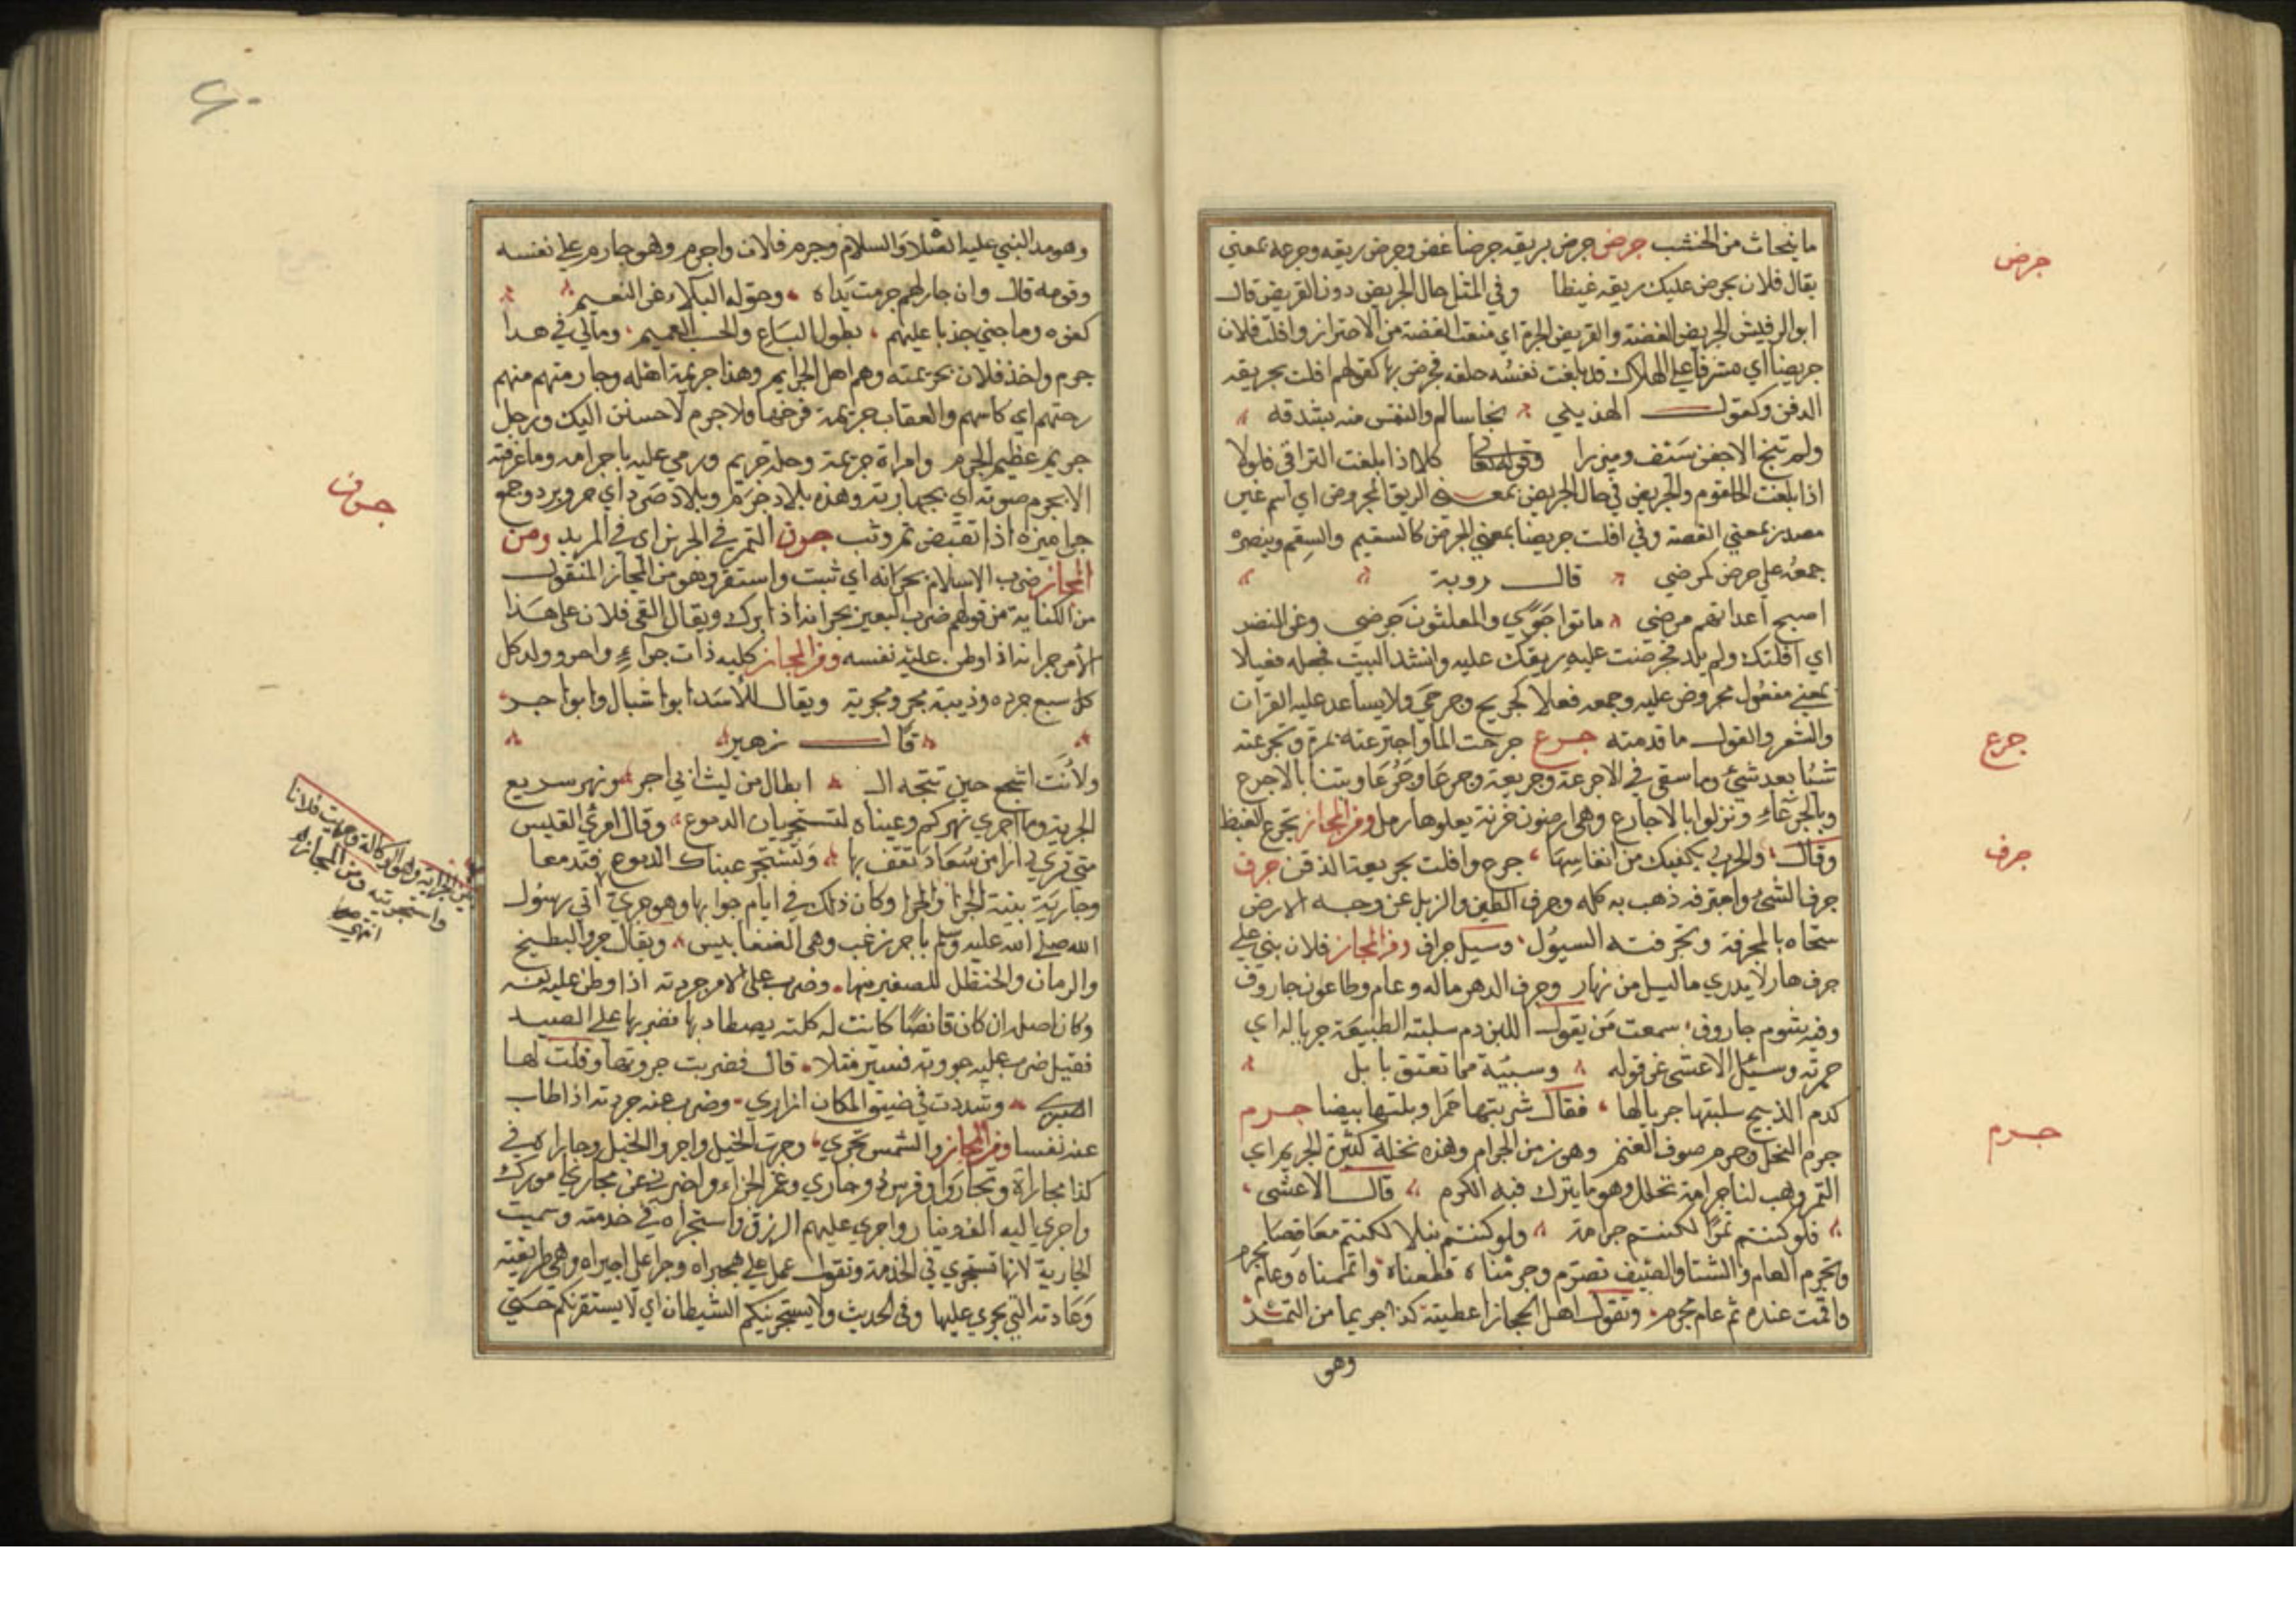 ما ينحات من الخشب جرض جرض بريقه جرضا غص وجرض ريقه وجرعه بمعني
يقال فلان يجرض عليك ريقه غيظا وفي المثل حال الجريض دون القريض قال
ابوالرقيش الجريض الغصة والقريض الجرة اي منعت الغصة من الاجترار وافلت فلان
جريضا اي مشرفا علي الهلاك قد بلغت نفسه حلقه فجرض بها كقولهم افلت بجريعة
الذقن وكقول الهذيلي نجا سالم والنفس منه بشدقه
ولم ينج الاجفن سيف وميزرا وقوله تعالى كلا اذا بلغت التراقي فلولا
اذا بلغت الحلقوم والجريض في حال الجريض بمعني الريق المجروض اي اسم غير
مصدر بمعني الغصة وفي افلت جريضا بمعني الجرض كالسقيم والسقم وينصره
جمعه علي جرضي كمرضي قال روبة
اصبح اعداتهم مرضي ماتوا جوي والمفلتون جرضي وعن النضر
اي افلتك ولم يكد فجرضت عليه ريقك عليه وانشد البيت فجعله فعيلا
بمعني مفعول مجروض عليه وجمعه فعلا كجريح وجرحي ولا يساعد عليه القران
والشعر والقول ما قدمته جرع جرعت الما واجترعته بمرة وتجرعته
شيئا بعد شيئ وما سقي في الاجرعة وجريعة وجرعا وجرعا وبتنا بالاجرع
وبالجرعاء ونزلوا بالاجارع وهي ارضون حزنة يعلوها رمل ومن المجاز تجرع الغيظ
وقال والحرب يكفيك من انفاسها جرع وافلت بجريعة الذقن جرف
جرف الشئ واجترفه ذهب به كله وجرف الطين والزبل عن وجه الارض
سحاه بالمجرفة وتجرفته السيول وسيل جراف ومن المجاز فلان بني علي
جرف هار لا يدري ما ليل من نهار وجرف الدهر ماله وعام وطاعون جاروف
وفيه شوم جاروف سمعت من يقول اللبن دم سلبته الطبيعة جرياله اي
حمرته وسئل الاعشي عن قوله وسبيئة مما تعتق بابل
كدم الذبيح سلبتها جريالها فقال شربتها حمرا وبلتها بيضا جرم
جرم النخل وجرم صوف الغنم وهو زمن الجرام وهذه نخلة كثيرة الجريم اي
التمر وهب لنا جرامة نخلك وهو ما يترك فيه الكرم قال الاعشي
فلو كنتم تمرا لكنتم جرامة ولو كنتم نبلا لكنتم معاقصا
وتجرم العام والشتا والصيف تصرم وجرمناه قطعناه واتممناه وعام مجرم
واقمت عنده ثم عام مجرم وتقول اهل الحجاز اعطيته كذا جريما من التمر
وهو
جرض
جرع
جرف
جرم
وهو مد النبي عليه الصلاة والسلام وجرم فلان واجرم وهو جارم علي نفسه
وقومه قال وان جارلهم جرمت يداه وحوله البلاء عن النعيم
كفوه وما جني جذبا عليهم بطول الباع والحسب العميم ومالي في هذا
جرم واخذ فلان بجريمته وهم اهل الجرايم وهذا جريمة اهله وجارمتهم منهم
رحتهم اي كاسبهم والعقاب جريمة فرخها ولا جرم لاحسنن اليك ورجل
جريم عظيم الجرم وامراة جريمة وجلة جريم ورمي عليه باجرامه وما عرفته
الا بجرم صوته اي بجهارته وهذه بلاد جرم وبلاد صرد اي حر وبرد وجمع
جراميزه اذا تقبض ثم وثب جرن التمر في الجرين اي في المربد ومن
المجاز ضرب الاسلام بجرانه اي ثبت واستقر وهو من المجاز المنقول
من الكناية من قولهم ضرب البعير بجرانه اذا برك ويقال القي فلان على هذا
الامر جرانه اذا وطن عليه نفسه ومن المجاز كلبه ذات جراء واجرو ولد كل
كل سبع جرده وذيبة مجر ومجرية ويقال للاسد ابواشبال وابو اجر
قال زهير
ولانت اشجع حين تتجه ال ابطال من ليث ابي اجر ونهر سريع
الجرية وما اجري نهركم وعيناه لتستجريان الدموع وقال امرئ القيس
متي تري دارا من سعاد تقف بها وتستجر عيناك الدموع فتدمعا
وجارية بينة الجرا والجرا وكان ذلك في ايام جرايها وهو جري اتي رسول
الله صلى الله عليه وسلم باجر زغب وهي الضغابيس ويقال جرو البطيخ
والرمان والحنظل للصغير منها وضرب على الامر جردته اذا وطن عليه نفسه
وكان اصله ان كان قانصا كانت له كلبة يصطاد بها فضربها علي الصيد
فقيل ضرب عليه جروته فسير مثلا قال فضربت جروتها وقلت لها
اصبري وشددت في ضيق المكان ازاري وضرب عنه جردته اذا طاب
عنه نفسا ومن المجاز والشمس تجري وجرت الخيل واجروا الخيل وجاراه في
كذا مجاراة وتجاروا وفرس ذو جاري وغمر الجراء واضربني عن مجاري امورك
واجري اليه الف دينار واجري عليهم الرزق واستجراه في خدمته وسميت
الجارية لانها تستجري في الخدمة وتقول عمل علي هجيراه وجرا علي اجيراه وهي طريقته
وعادته التي يجري عليها وفي الحديث ولا يستجرينكم الشيطان اي لا يستقرنكم حتي
جرن
الجراية وهو الوكالة وجريت فلانا
واستجرتيه ومن المجاز
انتهي